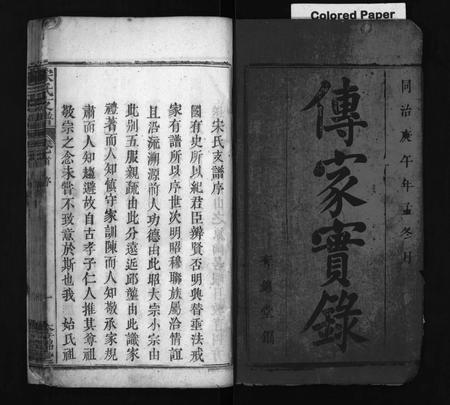 Colored Paper
同治庚午年孟冬月
傳家實錄
宋氏支譜序
國有史所以紀君臣辨賢否明興替垂法戒
家有譜所以序世次明昭穆聯族屬洽情誼
且沿流溯源前人功德由此昭大宗小宗由
此別五服親疏由此分遠近邱壟由此識家
禮著而人知慎守家訓陳而人知敬承家規
肅而人知趨避故自古孝子仁人推其尊祖
敬宗之念未嘗不致意於斯也我 始氏祖